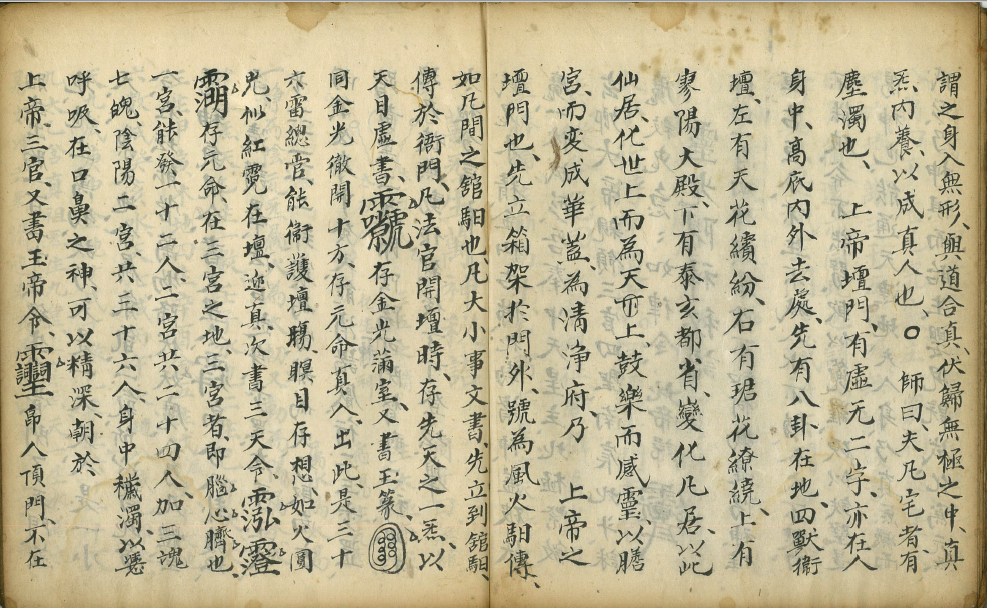 謂之身入無形、與道合真、伏歸無極之中、真
炁内養、以成真人也、○　師曰、夫凡宅者有
塵濁也、　上帝壇門、有虛无二字、亦在人
身中、高底内外去處、先有八卦在地、四獸衛
壇、左有天花繽紛、右有珺花繚繞、上有
寥陽大殿、下有泰玄都省、變化凡居、以此
仙居、化世上而為天上、鼓樂而感靈、以膳
宮、而变成華蓋、為清淨府、乃　上帝之
壇門也、先立箱架於門外、號為風火馹傳、
如凡間之舘馹也、凡大小事文書、先立到舘馹、
傳於衙門、凡法官開壇時、存先天之一炁、以
天目虛書、存金光蒲室、又書玉篆、
同金光徹開十方、存元命真人出、此是三十
六雷總管、能衛護壇場、瞑目存想、如火圓
光、似紅霓在壇、迩真、次書三天令、
存元命、在三宮之地、三宮者、即腦心臍也、
一宮、能發一十二人、二宮共二十四人、加三魂
七魄陰陽二宮共三十六人、身中穢濁、以
呼吸、在口鼻之神、可以精深、朝於
上帝、三官、又書玉帝令、帛人頂門、不在